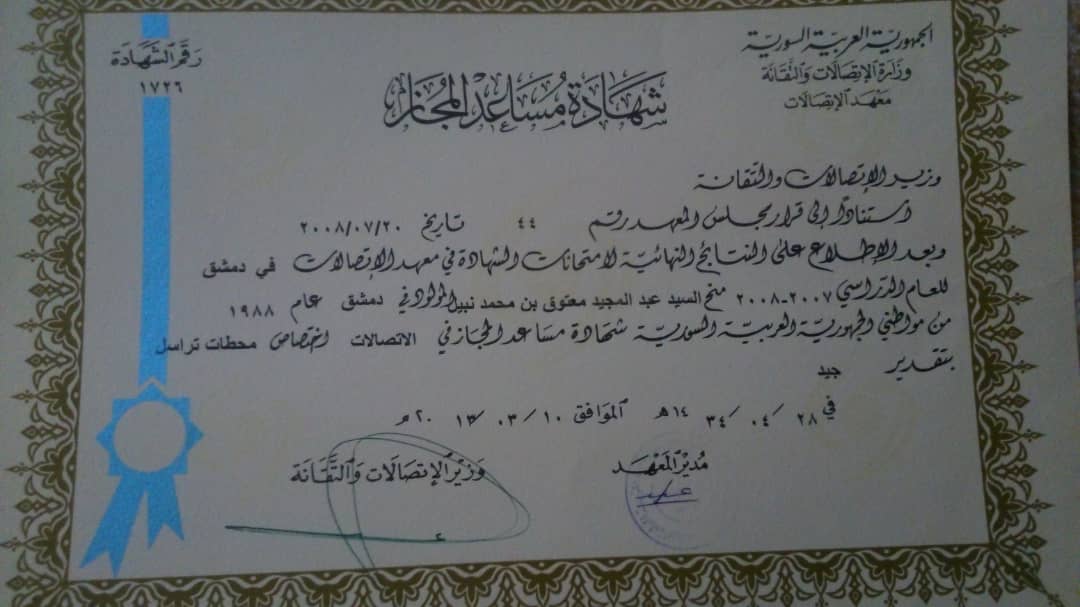 الجمهورية العربية السورية
وزارة الإتصالات والتقانة
معهد الإتصالات
رقم الشهادة
١٧٢٦
شهادة مساعد المجاز
وزير الإتصالات والتقانة
استناداً إلى قرار مجلس المعهد رقم ٤٤ تاريخ ٢٠٠٨/٠٧/٢٠
وبعد الإطلاع على النتائج النهائية لامتحانات الشهادة في معهد الإتصالات في دمشق
للعام الدراسي ٢٠٠٧-٢٠٠٨ منح السيد عبد المجيد معتوق بن محمد نبيل المولود في دمشق عام ١٩٨٨
من مواطني الجمهورية العربية السورية شهادة مساعد المجاز في الاتصالات اختصاص محطات تراسل
بتقدير جيد
في ٢٨ / ٠٤ / ٣٤ ١٤ هـ الموافق ١٠ / ٠٣ / ١٣ ٢٠ م
مدير المعهد
وزير الإتصالات والتقانة